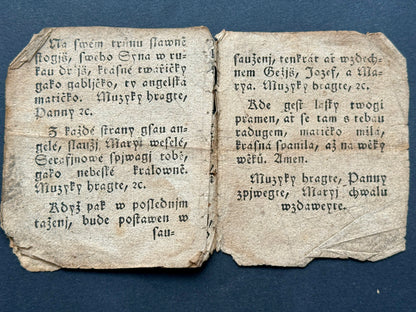 Na swém trůnu slawně
stogjš, swého Syna w ru-
kau držjš, krásné twařičky
gako gabljčko, ty angelská
matičko. Muzyky hragte,
Panny ꝛc.
Z každé strany gsau an-
gelé, slaužj Maryi weselé,
Serafjnowé spjwagj tobě,
gako nebeské králowně.
Muzyky hragte, ꝛc.
Když pak w poslednjm
taženj, bude postawen w
sau-
saužení, tenkrát ať wzdech-
nem Gežjš, Jozef, a Ma-
rya. Muzyky hragte, ꝛc.
Kde gest lásky twogi
pramen, ať se tam s tebau
radugem, matičko milá,
krásná spanilá, až na wěky
wěků. Amen.
Muzyky hragte, Panny
zpjwegte, Maryi chwálu
wzdaweyte.